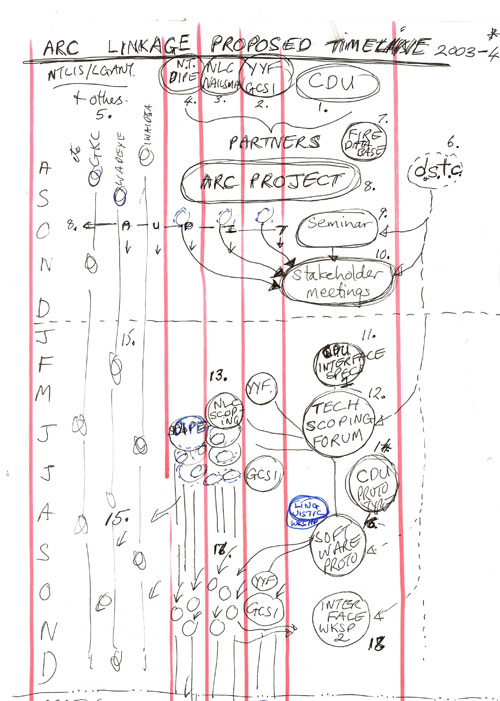 ARC LINKAGE PROPOSED TIMELINE 2003-4 *
NTLIS/LGANT.
+ others.
5.
N.T. DIPE
4.
NLC NAILSMA
3.
YYF GCSI
2.
CDU
1.
GKC
WADEYE
PARTNERS
7.
FIRE DATA BASE
6.
d.s.t.c
ARC PROJECT
8.
8.
A U D I T
9.
Seminar
10.
Stakeholder meetings
A
S
O
N
D
J
F
M
J
J
A
S
O
N
D
15.
11.
CDU INTERFACE SPEC
12.
TECH SCOPING FORUM
13.
YYF.
NLC SCOPING
DIPE
GCSI
14.
CDU PROTO TYPE
LING UISTIC WKSHP
15.
16.
SOFT WARE PROTO
YYF
GCSI
INTER FACE WKSP 2
18.